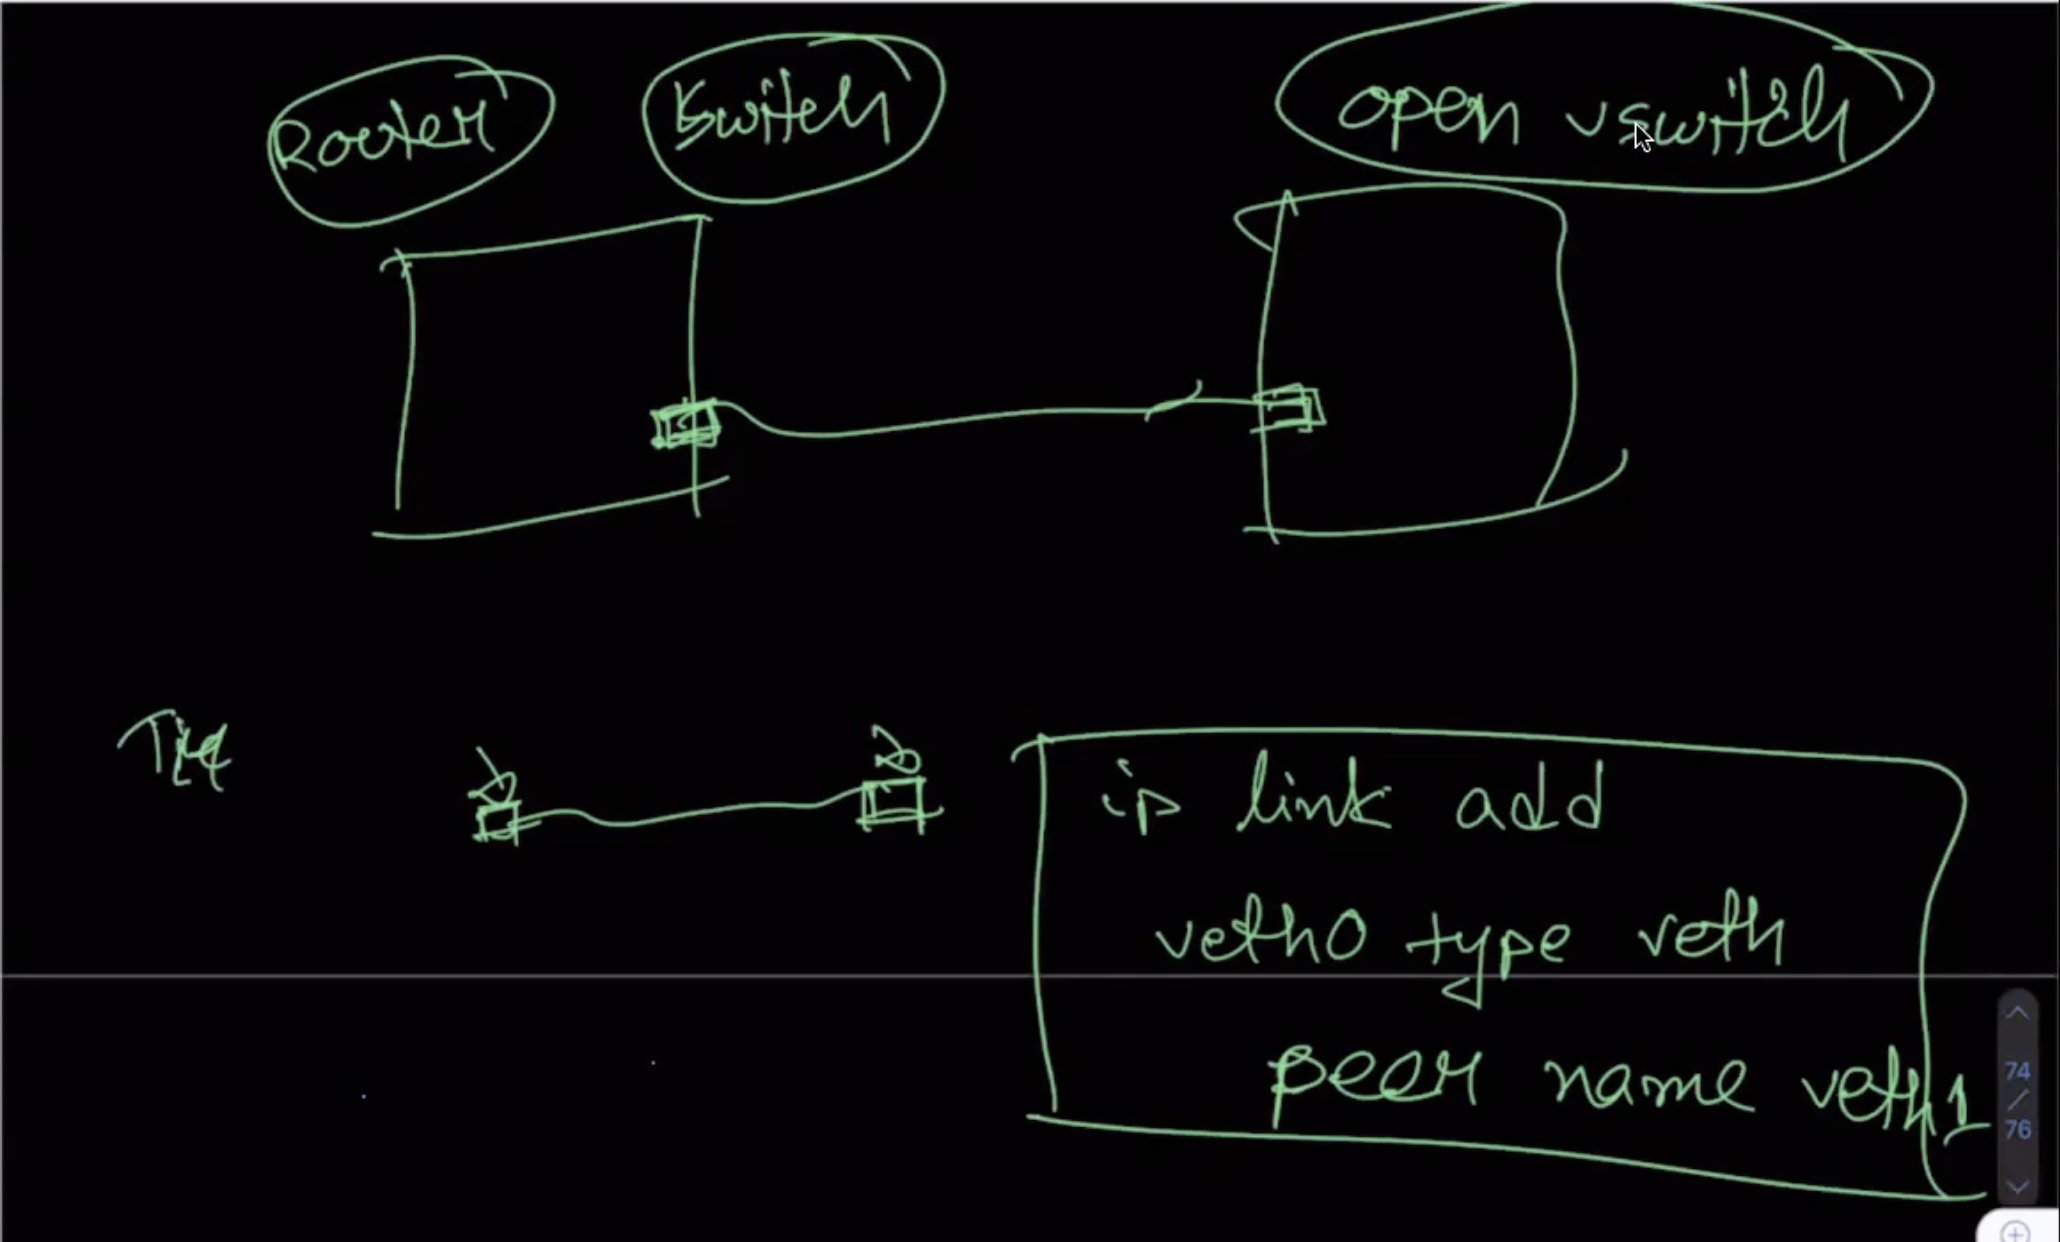 Router Switch open vswitch
ip link add
veth0 type veth
peer name veth1
74
/
76